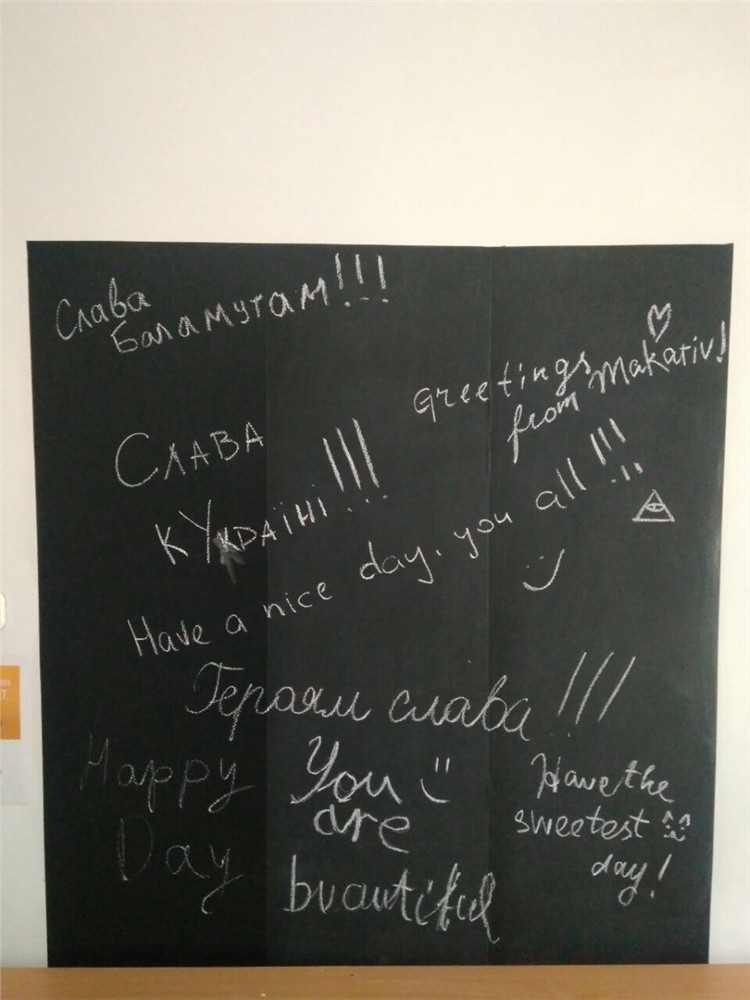 Слава
Баламутам!!!
Greetings
from Makativ!
СЛАВА
КУКРАЇНІ!!!
Have a nice day, you all!!!
Героям слава!!!
Happy
Day
You
are
bvautiful
Have the
sweetest
day!